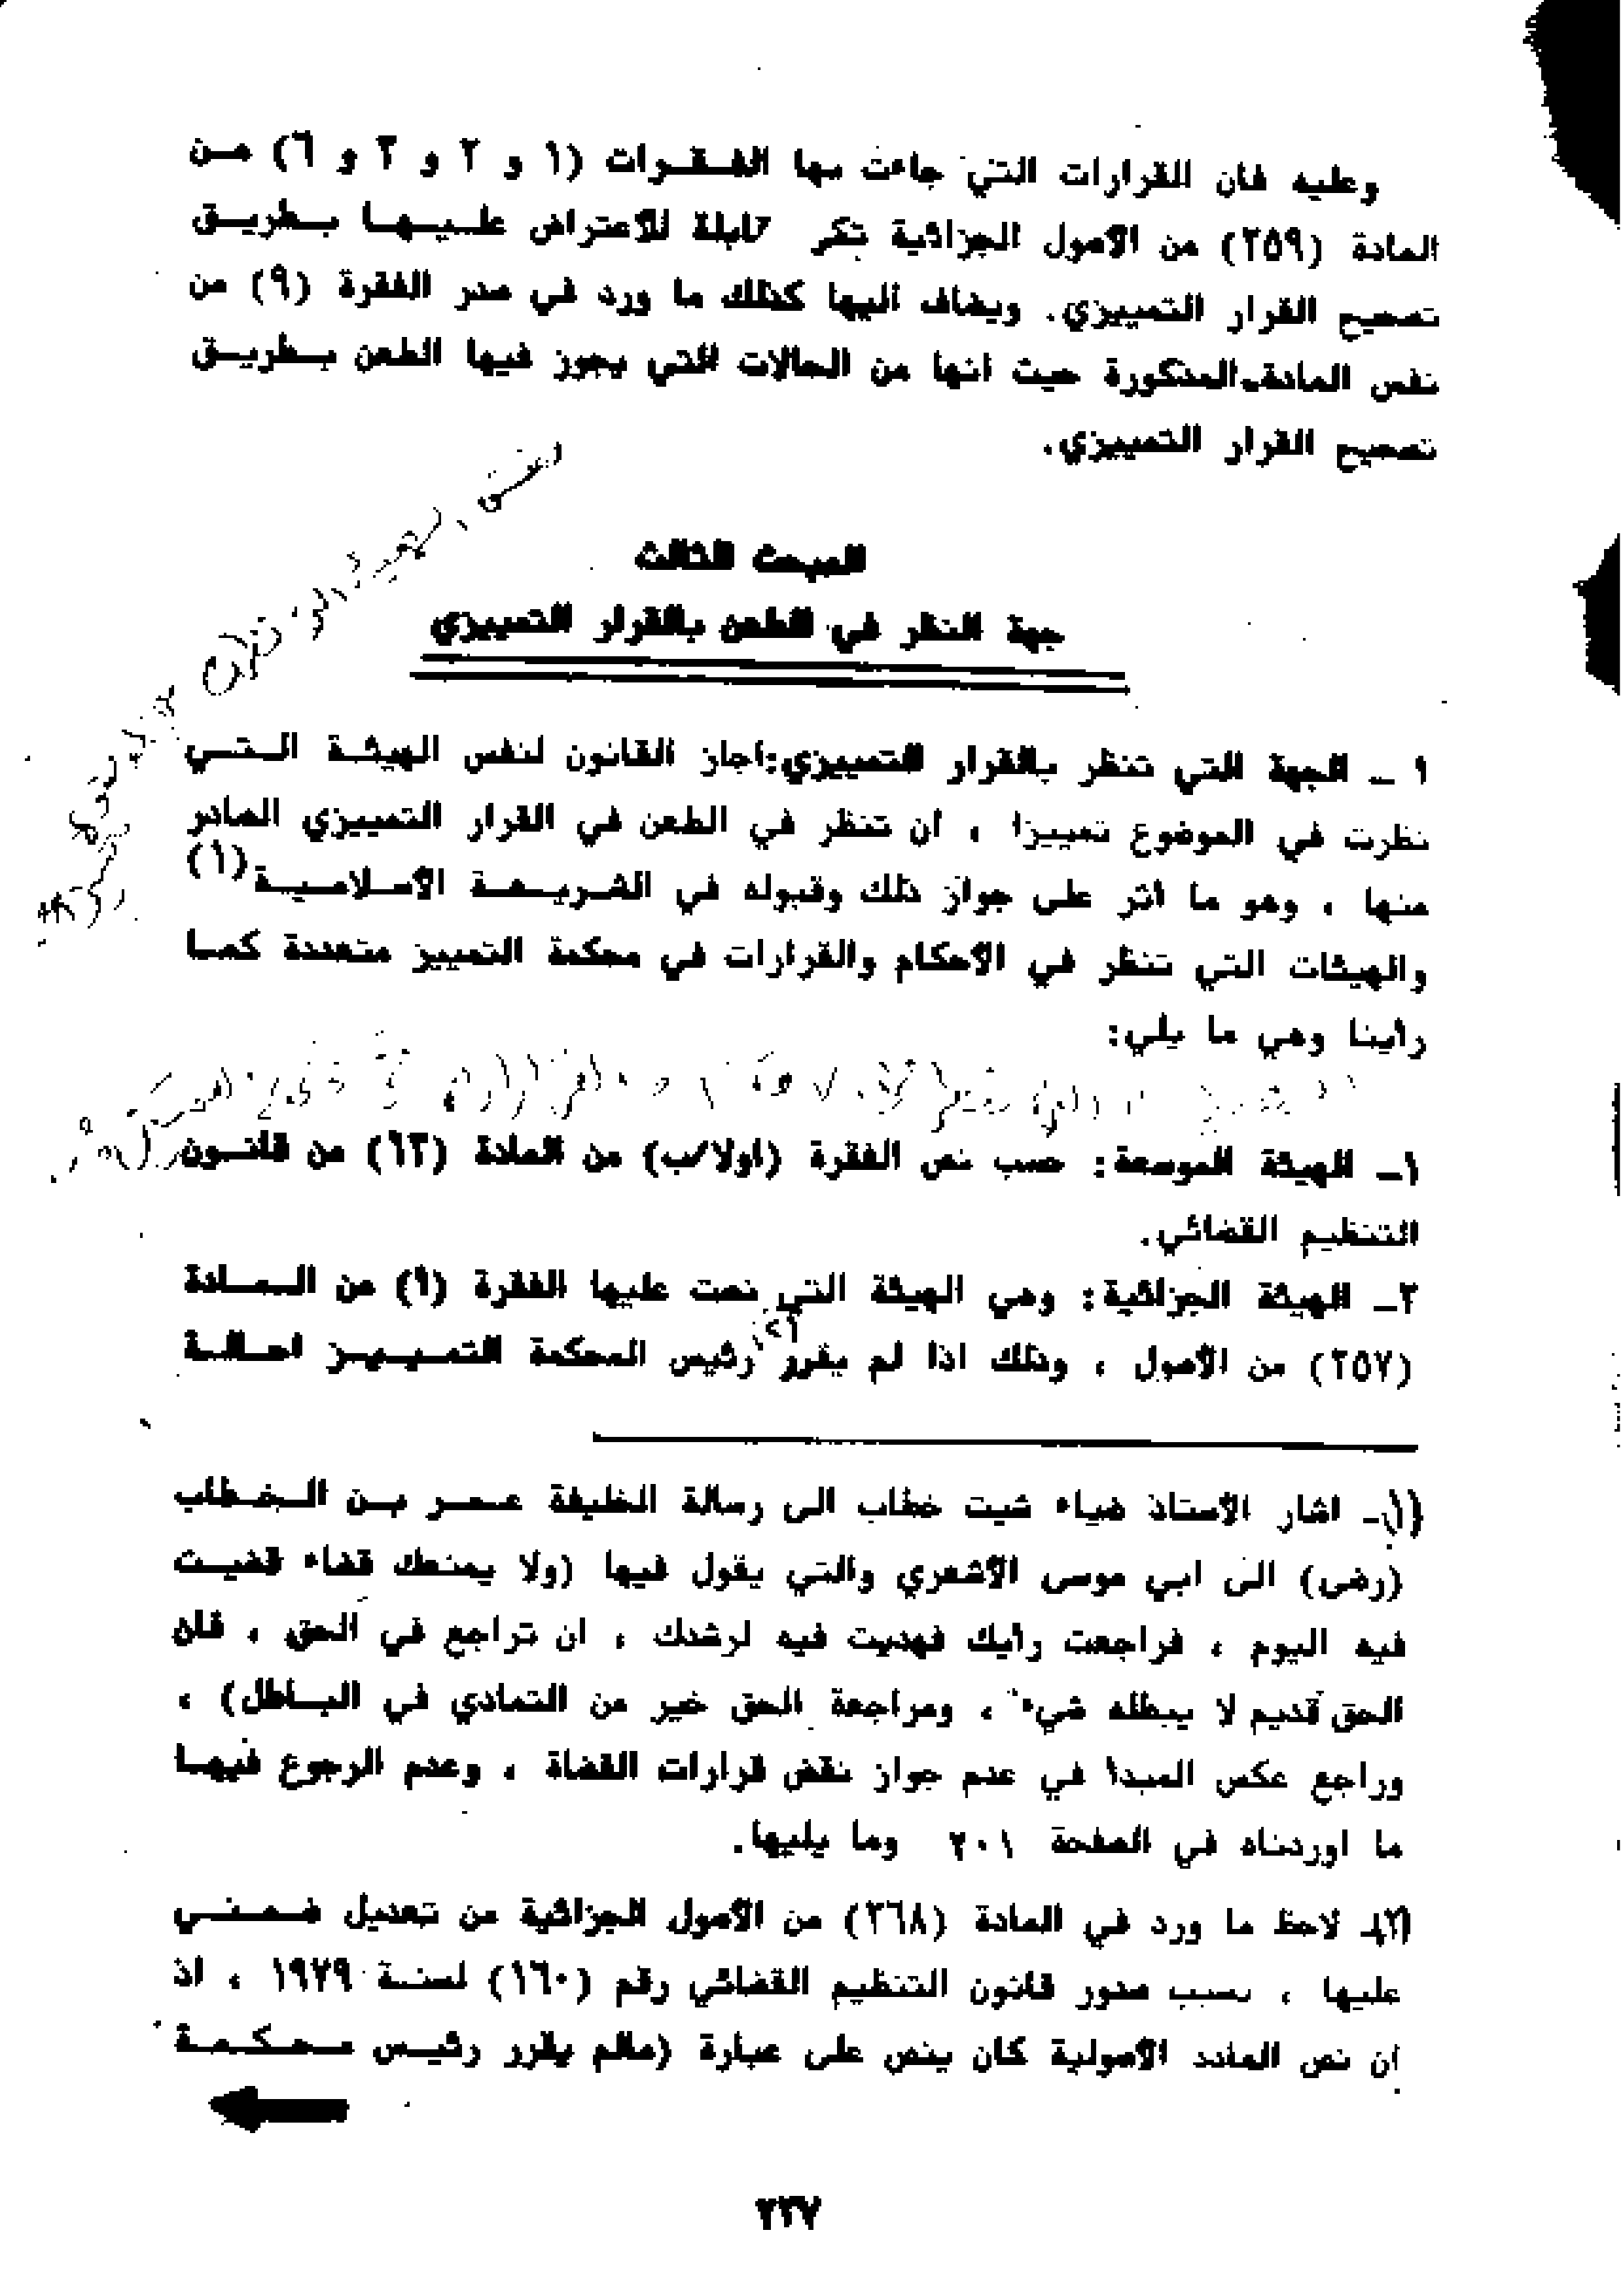 وعليه فان القرارات التي جاءت بها الفـقـرات (١ و ٢ و ٣ و ٦) مـن
المادة (٢٥٩) من الأصول الجزائية تكر قابلة للأعتراض علـيـهـا بـطريـق
تصحيح القرار التمييزي. ويضاف اليها كذلك ما ورد في صدر الفقرة (٩) من
نفس المادة المذكورة حيث انها من الحالات التي يجوز فيها الطعن بـطريـق
تصحيح القرار التمييزي.
المبحث الثالث
جهة النظر في الطعن بالقرار التمييزي
١ ـ الجهة التي تنظر بالقرار التمييزي: اجاز القانون لنفس الهيئـة الـتـي
نظرت في الموضوع تمييزا ، ان تنظر في الطعن في القرار التمييزي الصادر
منها ، وهو ما أثر على جواز ذلك وقبوله في الشـريـعـة الأسـلامـيـة (١)
والهيئات التي تنظر في الأحكام والقرارات في محكمة التمييز متعددة كمـا
رأينا وهي ما يلي:
١ـ الهيئة الموسعة: حسب نص الفقرة (اولا/ب) من المادة (١٣) من قانـون
التنظيم القضائي.
٢ـ الهيئة الجزائية: وهي الهيئة التي نصت عليها الفقرة (٩) من الـمـادة
(٢٥٧) من الأصول ، وذلك اذا لم يقرر (٢) رئيس المحكمة التمـيـيـز احـالـة
(١)ـ اشار الأستاذ ضياء شيت خطاب الى رسالة الخليفة عـمـر بـن الـخـطاب
(رضى) الى ابي موسى الأشعري والتي يقول فيها (ولا يمنعك قضاء قضيـت
فيه اليوم ، فراجعت رأيك فهديت فيه لرشدك ، ان تراجع في الحق ، فان
الحق قديم لا يبطله شيء ، ومراجعة الحق خير من التمادي في البـاطل) ،
وراجع عكس المبدا في عدم جواز نقض قرارات القضاة ، وعدم الرجوع فيهـا
ما اوردناه في الصفحة ٢٠١ وما يليها.
(٢)ـ لاحظ ما ورد في المادة (٢٦٨) من الأصول الجزائية من تعديل ضـمـنـي
عليها ، بسبب صدور قانون التنظيم القضائي رقم (١٦٠) لسنـة ١٩٧٩ ، اذ
ان نص المادد الأصولية كان ينص على عبارة (مالم يقرر رئيـس مـحـكـمـة
٢٣٧